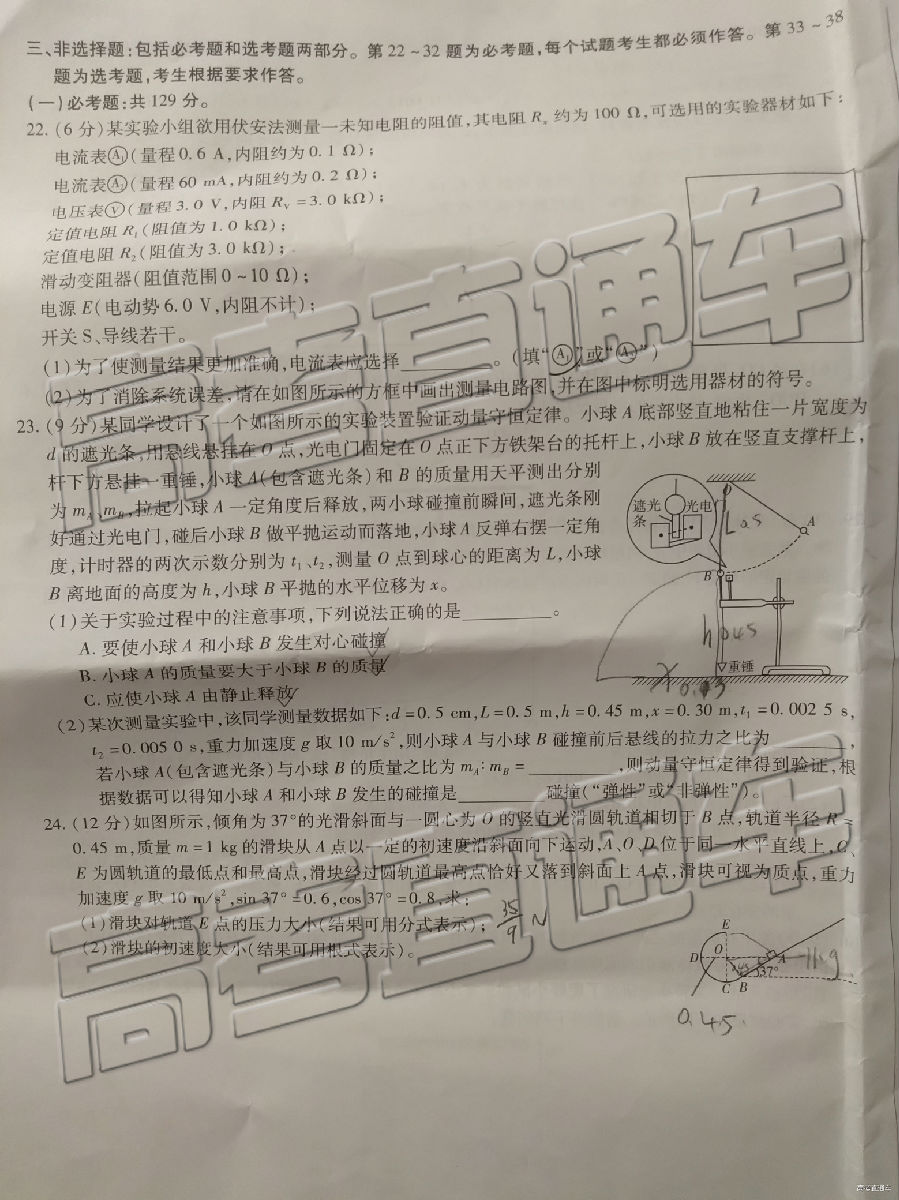 三、非选择题:包括必考题和选考题两部分。第22~32题为必考题,每个试题考生都必须作答。第33~38
题为选考题,考生根据要求作答。
(一)必考题:共129分。
22.(6分)某实验小组欲用伏安法测量一未知电阻的阻值,其电阻Rx约为100 Ω,可选用的实验器材如下:
电流表A₁(量程0.6 A,内阻约为0.1 Ω);
电流表A₂(量程60 mA,内阻约为0.2 Ω);
电压表V(量程3.0 V,内阻RV=3.0 kΩ);
定值电阻R₁(阻值为1.0 kΩ);
定值电阻R₂(阻值为3.0 kΩ);
滑动变阻器(阻值范围0~10 Ω);
电源E(电动势6.0 V,内阻不计);
开关S、导线若干。
(1)为了使测量结果更加准确,电流表应选择________。(填“A₁”或“A₂”)
(2)为了消除系统误差,请在如图所示的方框中画出测量电路图,并在图中标明选用器材的符号。
23.(9分)某同学设计了一个如图所示的实验装置验证动量守恒定律。小球A底部竖直地粘住一片宽度为
d的遮光条,用悬线悬挂在O点,光电门固定在O点正下方铁架台的托杆上,小球B放在竖直支撑杆上,
杆下方悬挂一重锤,小球A(包含遮光条)和B的质量用天平测出分别
为mA、mB,拉起小球A一定角度后释放,两小球碰撞前瞬间,遮光条刚
好通过光电门,碰后小球B做平抛运动而落地,小球A反弹右摆一定角
度,计时器的两次示数分别为t₁、t₂,测量O点到球心的距离为L,小球
B离地面的高度为h,小球B平抛的水平位移为x。
(1)关于实验过程中的注意事项,下列说法正确的是________。
A.要使小球A和小球B发生对心碰撞
B.小球A的质量要大于小球B的质量
C.应使小球A由静止释放
遮光条
光电门
O
L 0.5
A
B
h 0.45
重锤
x
(2)某次测量实验中,该同学测量数据如下:d=0.5 cm,L=0.5 m,h=0.45 m,x=0.30 m,t₁=0.002 5 s,
t₂=0.005 0 s,重力加速度g取10 m/s²,则小球A与小球B碰撞前后悬线的拉力之比为________,
若小球A(包含遮光条)与小球B的质量之比为mA∶mB=________,则动量守恒定律得到验证,根
据数据可以得知小球A和小球B发生的碰撞是________碰撞(“弹性”或“非弹性”)。
24.(12分)如图所示,倾角为37°的光滑斜面与一圆心为O的竖直光滑圆轨道相切于B点,轨道半径R=
0.45 m,质量m=1 kg的滑块从A点以一定的初速度沿斜面向下运动,A、O、D位于同一水平直线上,C、
E为圆轨道的最低点和最高点,滑块经过圆轨道最高点恰好又落到斜面上A点,滑块可视为质点,重力
加速度g取10 m/s²,sin 37°=0.6,cos 37°=0.8,求:
(1)滑块对轨道E点的压力大小(结果可用分式表示);
35/9 N
(2)滑块的初速度大小(结果可用根式表示)。
E
D
O
A
1kg
37°
C
B
0.45
高考直通车
高考直通车
高考直通车